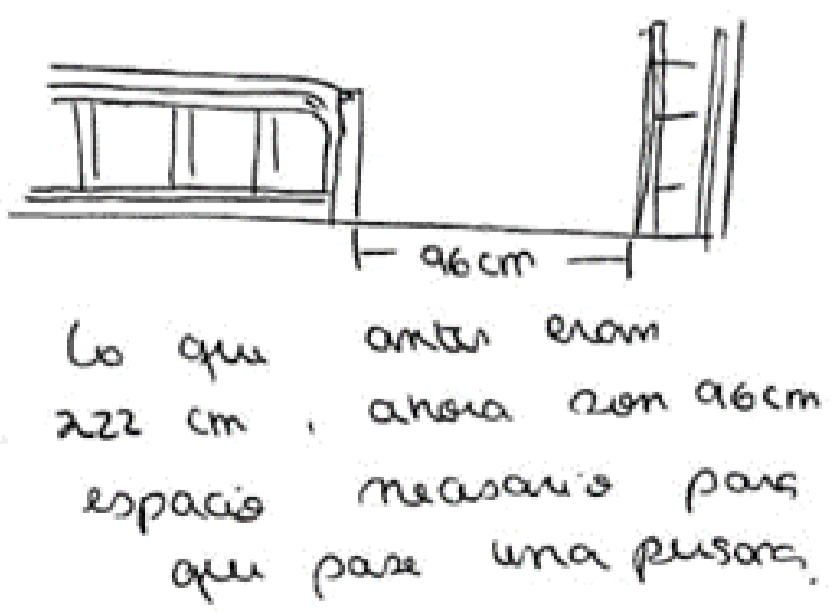 96 cm
Lo que antes eran
222 cm, ahora son 96cm
espacio necesario para
que pase una persona.